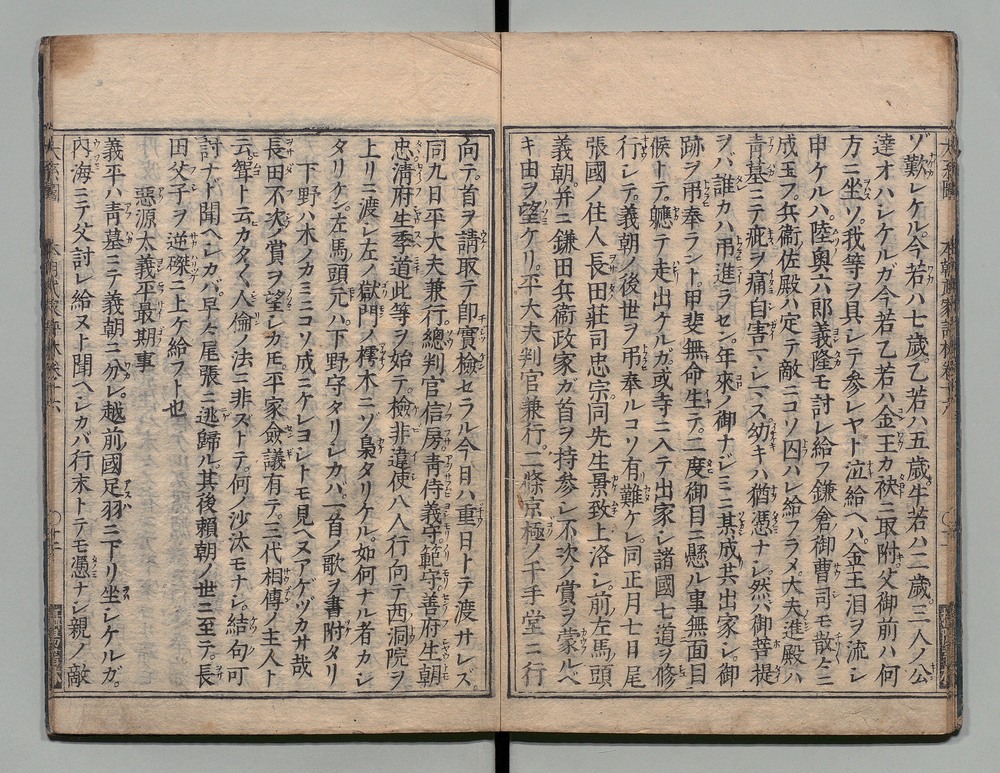 ゾ歎シケル。今若ハ七歳。乙若ハ五歳。牛若ハ二歳。三人ノ公
達オハシケルガ今若乙若ハ金王カ袂ニ取附父御前ハ何
方ニ坐ソ。我等ヲ具シテ参レヤト泣給ヘハ。金王泪ヲ流シ
申ケルハ。陸奥六郎義隆モ討レ給フ鎌倉御曹司モ散々ニ
成玉フ。兵衛佐殿ハ定テ敵ニコソ囚ハレ給フラメ。大夫進殿ハ
青墓ニテ疵ヲ痛自害シマス幼キハ猶憑ナシ。然バ御菩提
ヲバ誰カハ弔進ラセン。年來ノ御ナジミニ某成共出家シ。御
跡ヲ弔奉ラント。甲斐無命生テ。二度御目ニ懸ル事無面目
候トテ。軈テ走出ケルガ或寺ニ入テ出家シ諸國七道ヲ修
行シテ。義朝ノ後世ヲ弔奉ルコソ有難ケレ。同正月七日尾
張國ノ住人長田莊司忠宗。同先生景致上洛シ。前左馬頭
義朝。并ニ鎌田兵衛政家ガ首ヲ持参シ不次ノ賞ヲ蒙ルベ
キ由ヲ望ケリ。平大夫判官兼行。二條京極ノ千手堂ニ行
向テ。首ヲ請取テ即實檢セラル今日ハ重日トテ渡サレズ。
同九日平大夫兼行。總判官信房。青侍義守。範守。善府生朝
忠。清府生季道此等ヲ始テ。檢非違使八人行向テ西洞院ヲ
上リニ渡シ左ノ獄門ノ樗木ニゾ梟タリケル。如何ナル者カシ
タリケン。左馬頭元ハ下野守タリシカバ。一首ノ歌ヲ書附タリ
下野ハ木ノカミニコソ成ニケレヨシトモ見ヘヌアゲヅカサ哉
長田不次ノ賞ヲ望シカ𪜈。平家僉議有テ。三代相傳ノ主人ト
云聟ト云カタ〱人倫ノ法ニ非ストテ。何ノ沙汰モナシ。結句可
討ナト聞ヘシカバ。早々尾張ニ逃歸ル。其後賴朝ノ世ニ至テ。長
田父子ヲ逆磔ニ上ケ給フト也
惡源太義平最期事
義平ハ青墓ニテ義朝ニ分レ。越前國足羽ニ下リ坐シケルガ。
内海ニテ父討レ給ヌト聞ヘシカバ行末トテモ憑ナシ親ノ敵